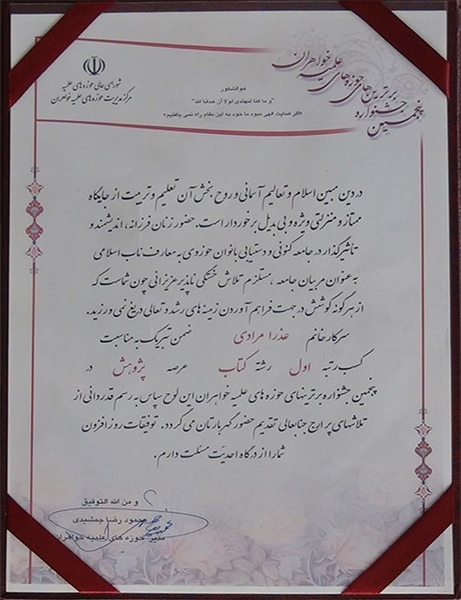 پنجمین جشنواره
برترین‌های حوزه‌های
علمیه خواهران
شورای عالی حوزه های علمیه
مرکز مدیریت حوزه های علمیه خواهران
هوالشکور
"و ما کنا لنهتدی لولا أن هدانا الله"
«گر هدایت الهی نبود ما خود به این مقام راه نمی یافتیم»
در دین مبین اسلام و تعالیم آسمانی و روح بخش آن تعلیم و تربیت از جایگاه
ممتاز و منزلتی ویژه و بی بدیل برخوردار است. حضور زنان فرزانه، اندیشمند و
تاثیرگذار در جامعه کنونی و دستیابی بانوان حوزوی به معارف ناب اسلامی
به عنوان مربیان جامعه، مستلزم تلاش خستگی ناپذیر عزیزانی چون شماست که
از هر گونه کوشش در جهت فراهم آوردن زمینه های رشد و تعالی دریغ نمی ورزید.
سرکار خانم عذرا مرادی ضمن تبریک به مناسبت
کسب رتبه اول رشته کتاب عرصه پژوهش در
پنجمین جشنواره برترینهای حوزه های علمیه خواهران این لوح سپاس به رسم قدردانی از
تلاشهای پر ارج جنابعالی تقدیم حضور گهربارتان می گردد. توفیقات روز افزون
شما را از درگاه احدیّت مسئلت دارم.
و من الله التوفیق
محمود رضا جمشیدی
مدیر حوزه های علمیه خواهران